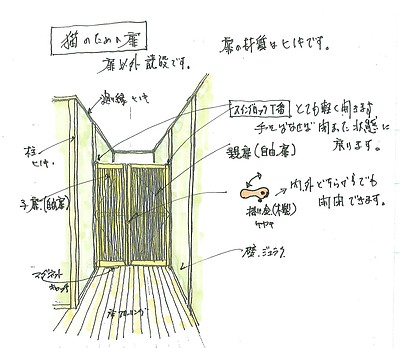 猫のための扉
扉以外既設です。
扉の材質はヒノキです。
廻り縁 ヒノキ
スイングロック丁番
とても軽く開きます
手をはなせば閉まった状態に
戻ります。
柱
ヒノキ
親扉(自由扉)
子扉(自由扉)
内、外どちらからでも
開閉できます。
掛け金(木製)
ケヤキ
壁、ジュラク
マグネット
キャッチ
床フローリング